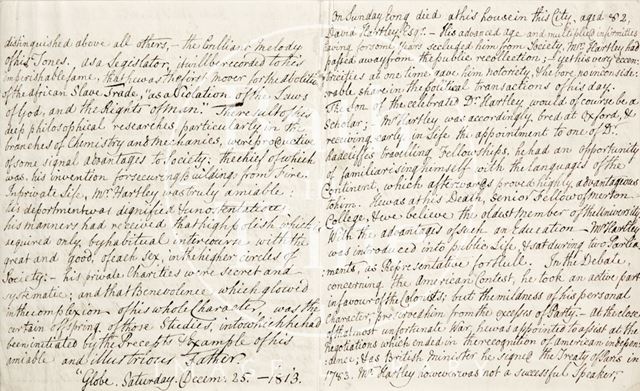 On Sunday Ev'g died at his house in this City, aged 82,
David Hartley Esqr. - His advanced age and multiplied infirmities
having for some Years secluded him from Society, Mr. Hartley had
passed away from the public recollection; - yet his very eccen-
tricities at one time gave him notoriety, & he bore no inconside-
rable share in the political transactions of his day.
The son of the celebrated Dr Hartley would of course be a
Scholar; - Mr Hartley was accordingly, bred at Oxford, &
receiving early in Life the appointment to one of Dr.
Radcliffes travelling Fellowships, he had an opportunity
of familiarising himself with the languages of the
Continent, which afterwards proved highly advantageous
to him. He was at his Death, Senior Fellow of merton -
College, & we believe the oldest Member of the University
With the advantages of such an Education - Mr Hartley
was introduced into public Life, & sat during two Parlia-
ments, as Representative for Hull. In the Debate,
concerning the American Contest, he took an active part
in favour of the Colonists; but the mildness of his personal
Character, preserved him from the excesses of Party: - at the close
of that most unfortunate War, he was appointed to assist at the
Negotiations which ended in the recognition of american indepen-
dence, & as British Minister he signed the Treaty of Paris in
1783. Mr. Hartley however was not a successful Speaker,
distinguished above all others, - the brilliant melody
of his Tones. As a Legislator, it will be recorded to his
imperishable fame, that he was the first mover for the abolition
of the african Slave Trade, "as a Violation of the Laws
of God, and the Rights of man." The result of his
deep philosophical researches, particularly in the
branches of Chemistry and mechanics, were productive
of some signal advantages to Society; the chief of which
was his invention for securing Buildings from Fire.
In private Life, Mr Hartley was truly amiable;
his deportment was dignified & unostentatious,
his manners had received that high polish which is
required only by habitual intercourse with the
great and good, of each Sex, in the higher circles of
Society: - his private Charities were secret and
systematic; and that Benevolence which glow'd
in the complexion of his whole Character, was the
certain offspring of those Studies, into which he had
been initiated by the Precepts & Example of his
amiable and illustrious Father.
"Globe, Saturday, Decem. 25. - 1813.